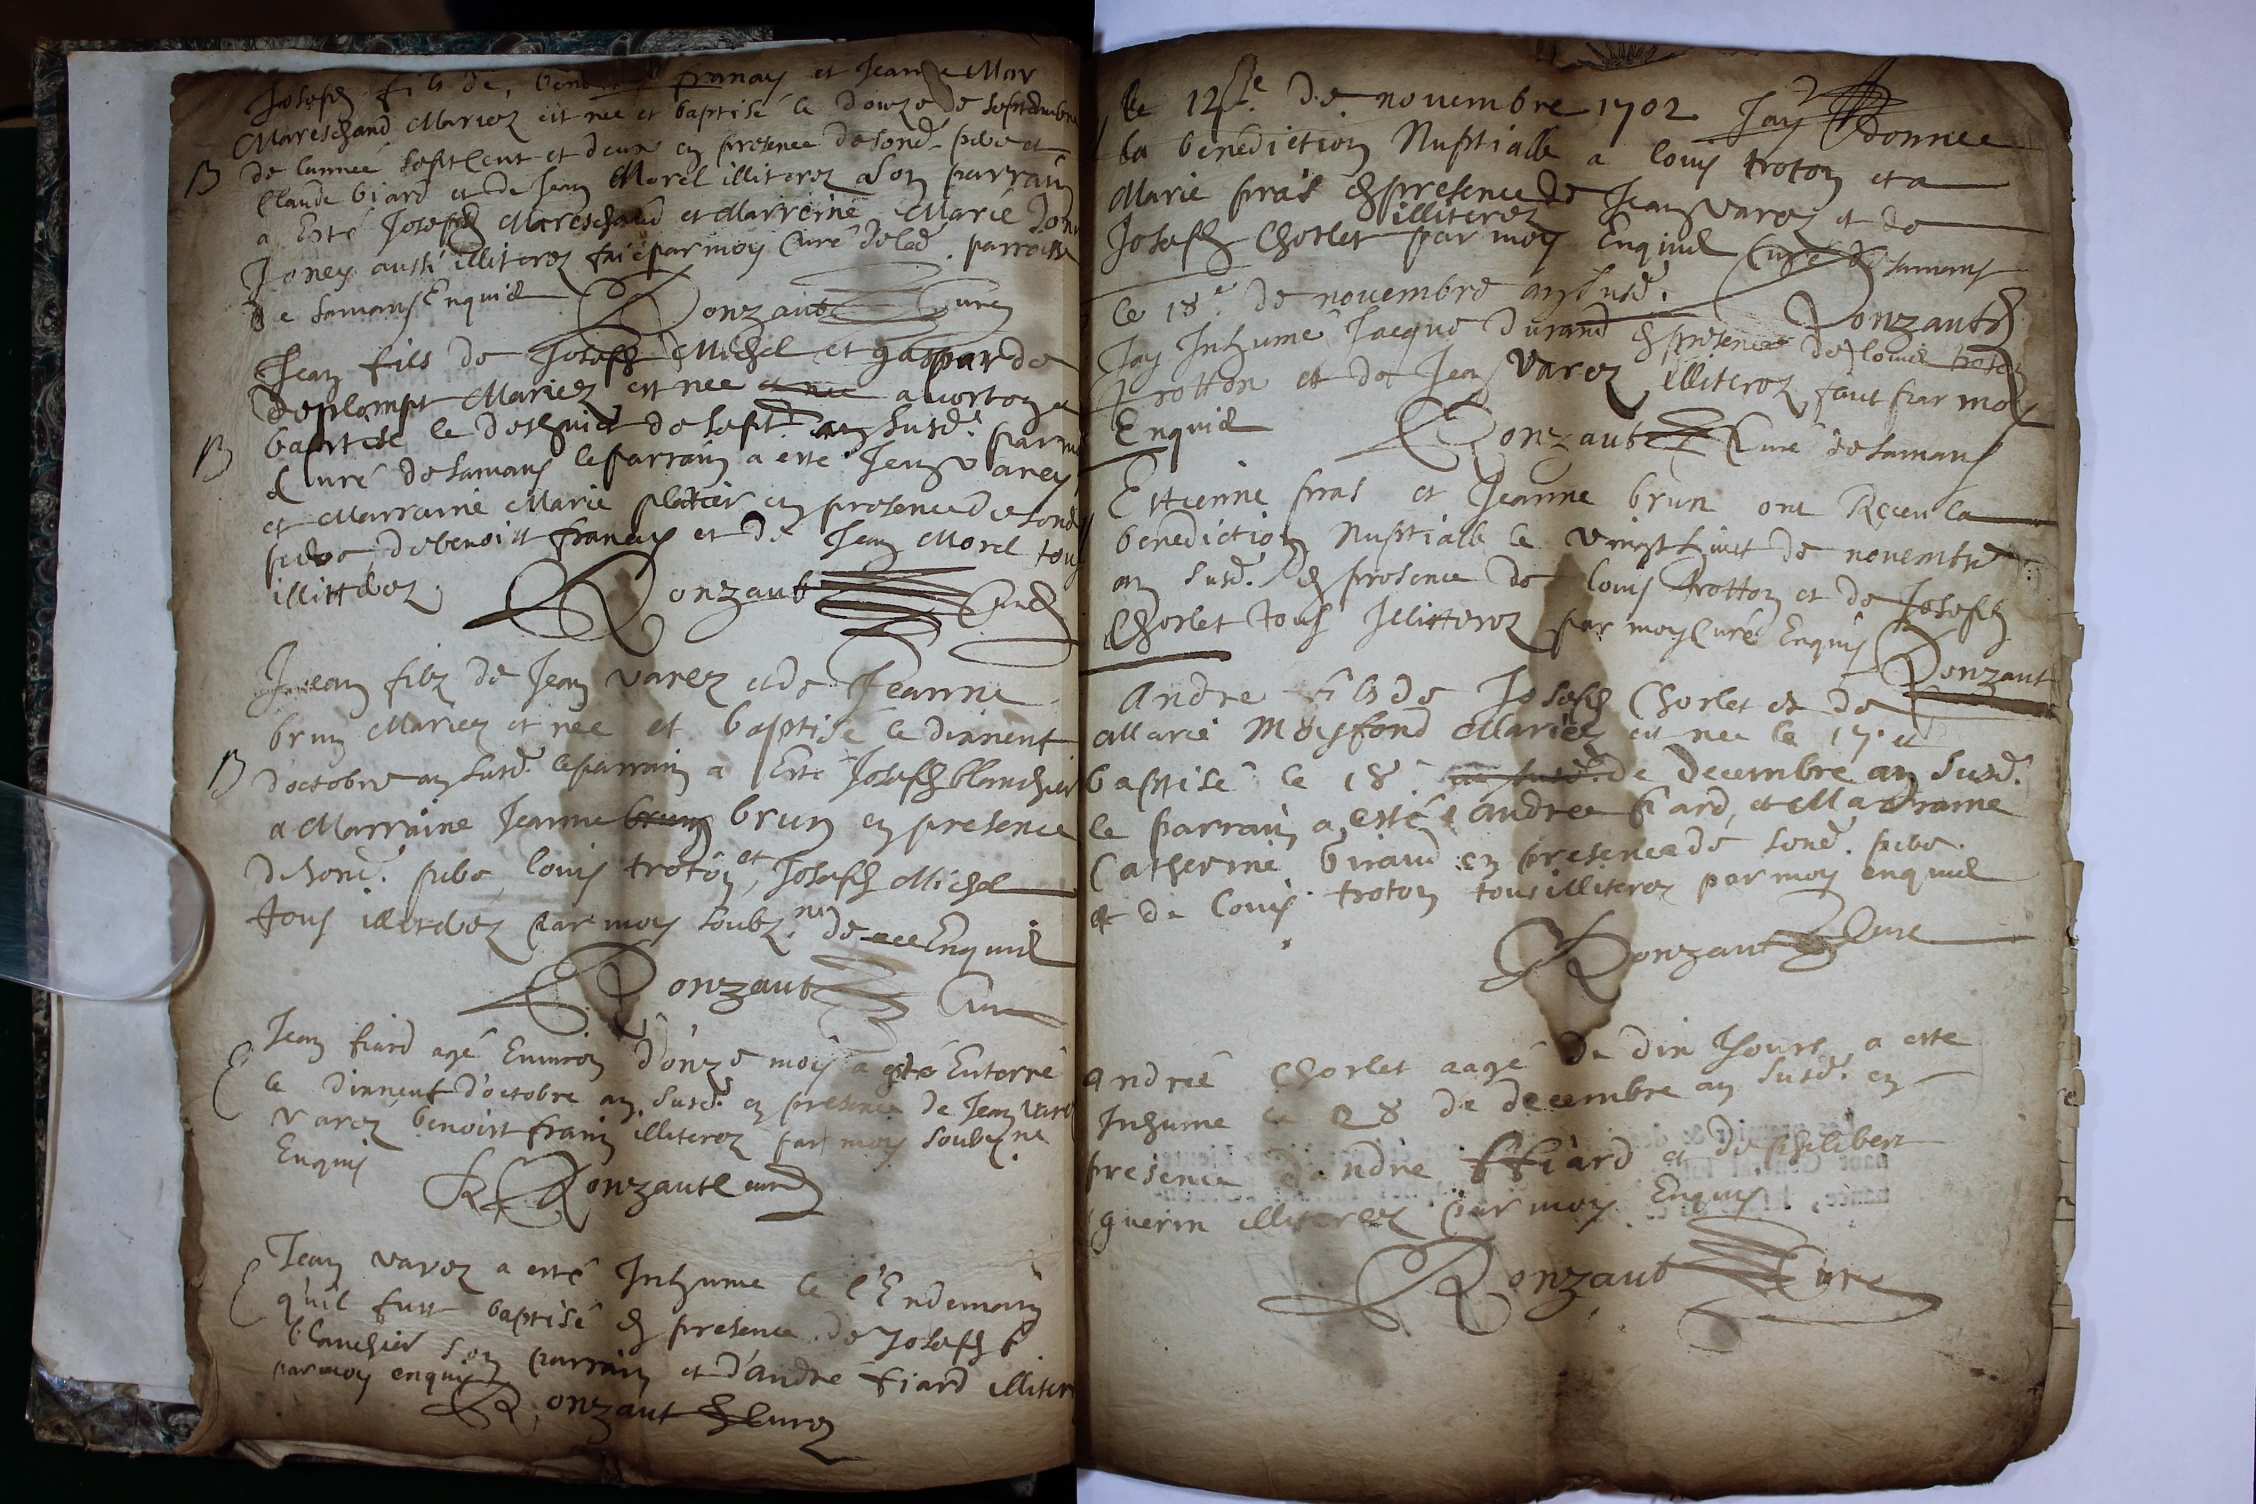 Joseph fils de, franay et Jeanne Mar
Mareschand Mariez est nee et baptisé le douze de septembre
B
de lannée sept Cent et deux en presence de sond. pere et
Claude biard et de Jean Morel illiterez Son parrain
a Esté Joseph Mareschand et Marreine Marie
Joney aussi illiterez fait par moy Curé delad. parroisse
de Samans Enquid
Ronzaut Curé
Jean fils de Joseph Michel et gasparde
Mariez est nee a vortoz et
baptisé le deshuict de sept. an susd. par
B
Curé de Samans le parrain a esté Jean Varey
et Marraine Marie platier en presence de sond
pere, de benoist franay et de Jean Morel tous
illitterez
Ronzaut Curé
Jean filz de Jean Varez et de Jeanne
brun Mariez et née et baptisé le dixneuf
B
d'octobre an susd. le parrain a Esté Joseph blanchier
et Marraine Jeanne brun brun en presence
de sond. pere, louis troton, et Joseph Michel
tous illiterez par moy soubz.né de ce Enquid
Ronzaut Curé
Jean fiard agé Environ d'onze mois a esté Enterré
le dixneuf d'octobre an susd. en presence de Jean Varez
Varez benoist franay illiterez par moy soubz.né
Enquis
Ronzaut curé
Jean Varez a esté Inhume le l'Endemain
qu'il fust baptisé en presence de Joseph b
blanchier son parrain et d'andre fiard illiter
par moy enquis
Ronzaut Curé
le 12.e de novembre 1702 Jay donnee
la benediction Nuptialle a louis troton et a
Marie pras en presence de Jean Varez et de
illiterez
Joseph Chorlet par moy Enquid Curé de Samans
Ronzaut
Le 18.e de novembre an susd.
Jay Inhumé Jacque Durand en presence de louis troton
trotton et de Jean Varez illiterez, fait par moy
Enquid
Ronzaut Curé de Samans
Estienne pras et Jeanne brun ont Receu la
benediction Nuptialle le vingt huit de novembre
an susd. en presence de louis trotton et de Joseph
Chorlet tous Illitterez par moy Curé Enquis
Ronzaut
Andre fils de Joseph Chorlet et de
Marie Mariez est nee le 17. et
baptisé le 18. de decembre an susd.
le parrain a esté andree fiard, et Marraine
Catherine Giraud en presence de sond. pere.
et de louis troton tous illiterez par moy enquid
Ronzaut Curé
andreé Chorlet aagé de dix Jours a esté
Inhume le 28 de decembre an susd. en
presence d'andre ffiard et de philibert
guerin illiterez par moy Enquis
Ronzaut Curé